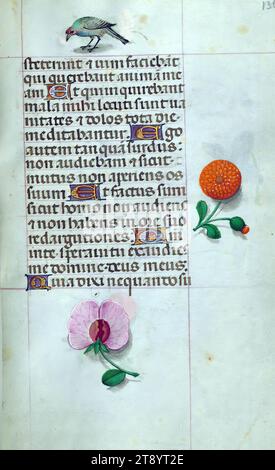 steterunt et uim faciebāt
qui querebant animā me
am Et qui inquirebant
mala michi locuti sunt ua
nitates et dolos tota die
meditabantur Ego
autem tanquā surdus
non audiebam et sicut
mutus non aperiens os
suum Et factus sum
sicut homo non audiens
et non habens in ore suo
redargutiones Qm̄ in
te speraui exaudies
me domine deus meus
Quia dixi nequando su
alamy
Image ID: 2T8Y2TE
www.alamy.com